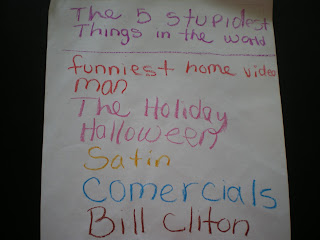 The 5 stupidest
Things in the world
funniest home video
man
The Holiday
Halloween
Satin
Comercials
Bill Cliton